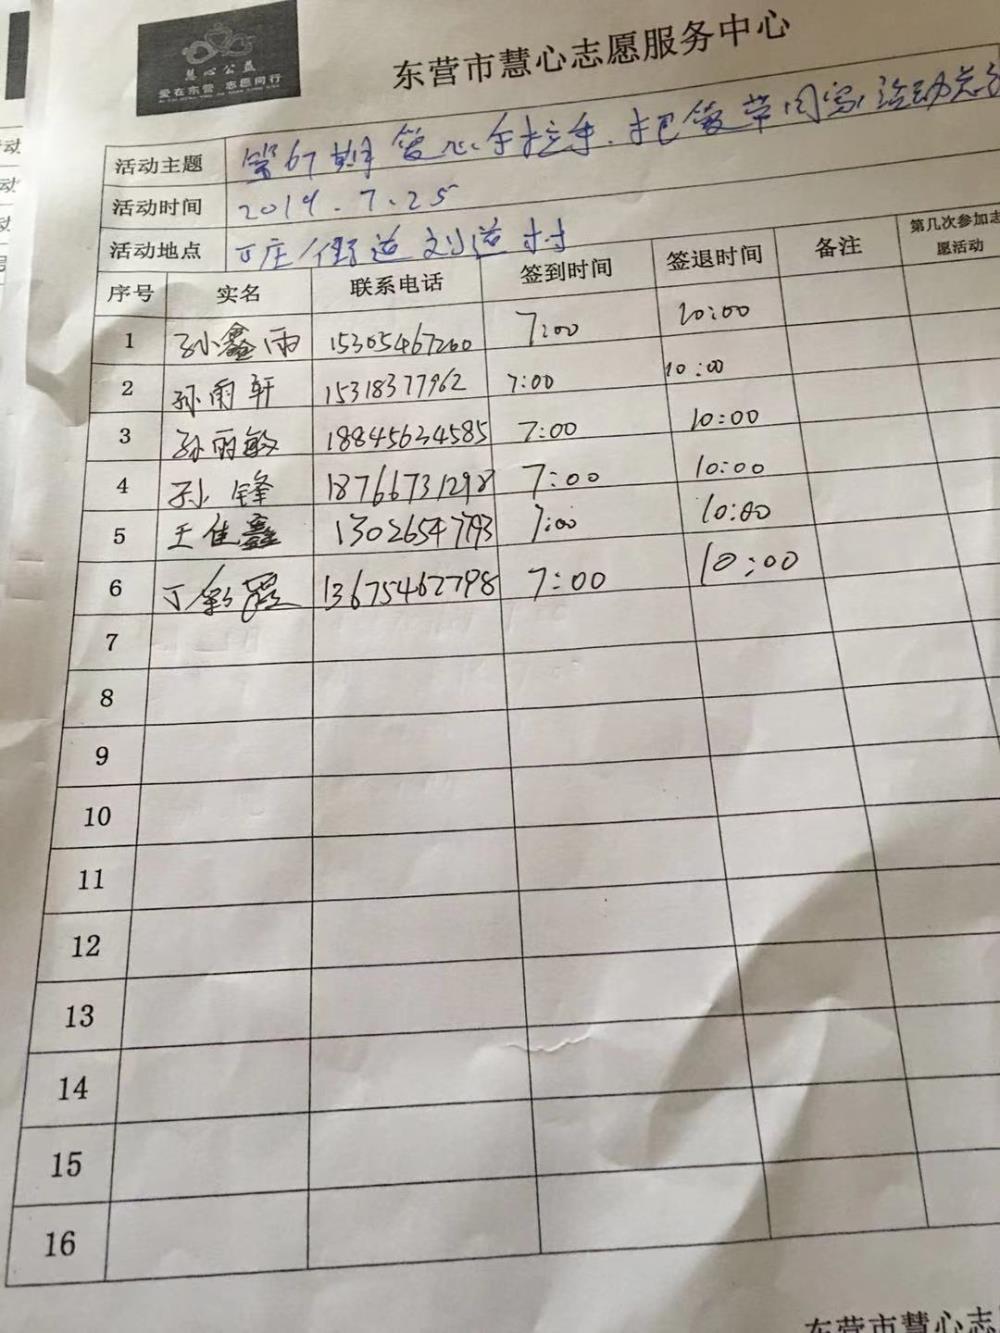 慧心公益
爱在东营 志愿同行
东营市慧心志愿服务中心
活动主题 第67期 爱心手拉手.把爱带回家 活动
活动时间 2019.7.25
活动地点 丁庄街道刘道村
序号 实名 联系电话 签到时间 签退时间 备注 第几次参加志愿活动
1 孙鑫雨 15305467260 7:00 10:00
2 孙雨轩 15318377962 7:00 10:00
3 孙丽敏 18845634585 7:00 10:00
4 孙锋 18766731298 7:00 10:00
5 王佳鑫 13026547793 7:00 10:00
6 丁彩霞 13675462798 7:00 10:00
7
8
9
10
11
12
13
14
15
16
东营市慧心志